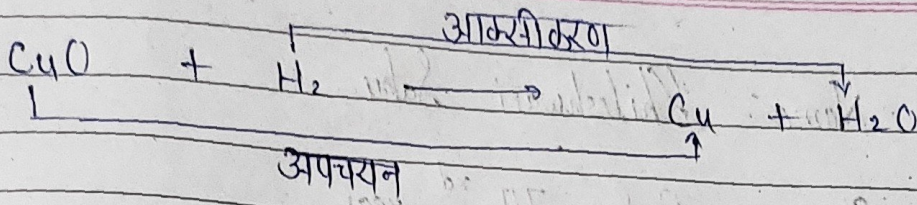 आक्सीकरण
CuO + H₂ → Cu + H₂O
अपचयन